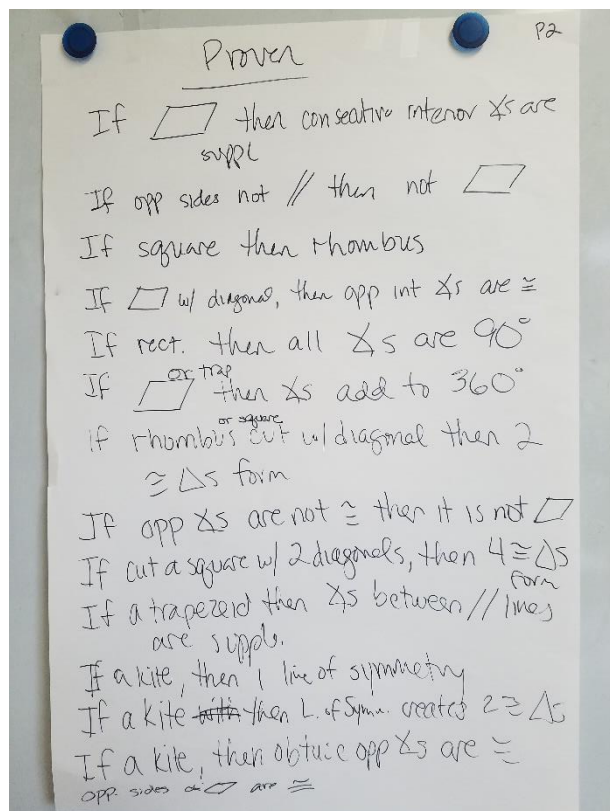 P2
Proven
If ▱ then consecutive interior ∡s are
suppl
If opp sides not // then not ▱
If square then rhombus
If ▱ w/ diagonal, then opp int ∡s are ≅
If rect. then all ∡s are 90°
or trap
If ▱ then ∡s add to 360°
or square
if rhombus cut w/ diagonal then 2
≅ △s form
If opp ∡s are not ≅ then it is not ▱
If cut a square w/ 2 diagonals, then 4 ≅ △s
form
If a trapezoid then ∡s between // lines
are suppl.
If a kite, then 1 line of symmetry
If a kite then L. of Symm. creates 2 ≅ △s
If a kite, then obtuse opp ∡s are ≅
opp. sides of ▱ are ≅